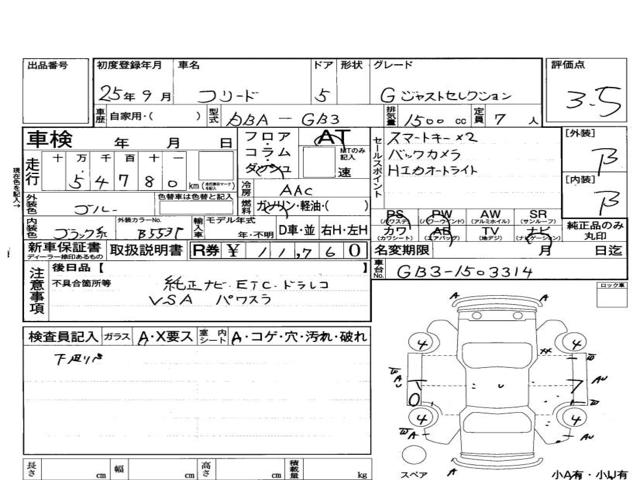 出品番号 初度登録年月 車名 ドア 形状 グレード 評価点
25年9月 フリード 5 Gジャストセレクション 3.5
車歴 自家用・( ) 型式 DBA-GB3 排気量 1500cc 定員 7人
車検 年 月 日 フロア・コラム・ダッシュ AT MTのみ記入 速
走行 十 万 千 百 十 km
54780
冷房 AAC
外装色 ブルー 色替車は色替と記入 燃料 ガソリン・軽油・( )
内装色 ブラック系 外装カラーNo. B553P 輸入車 モデル年式 年・不明 D車・並 右H・左H
セールスポイント
スマートキー×2
バックカメラ
HIDオートライト
[外装] B
[内装] B
PS (パワステ) PW (パワーウインド) AW (アルミホイル) SR (サンルーフ)
カワ (カワシート) AB (エアバッグ) TV (地デジ) ナビ (ナビゲーション)
純正品のみ丸印
新車保証書 ディーラー捺印あるもの 取扱説明書 R券 ¥11,760
名変期限 月 日迄
車台No. GB3-1503314
注意事項 後日品【 】
不具合箇所等 純正ナビ・ETC・ドラレコ
VSA パワスラ
ロック車
検査員記入 ガラス A・X要ス 室内シート A・コゲ・穴・汚れ・破れ
下廻りサビ
A
4 4
W W
A AU
U U 7
0
4 4
W W
A
スペア 小A有・小U有
長さ cm 幅 cm 高さ cm 積載量 kg
現在色を記入→